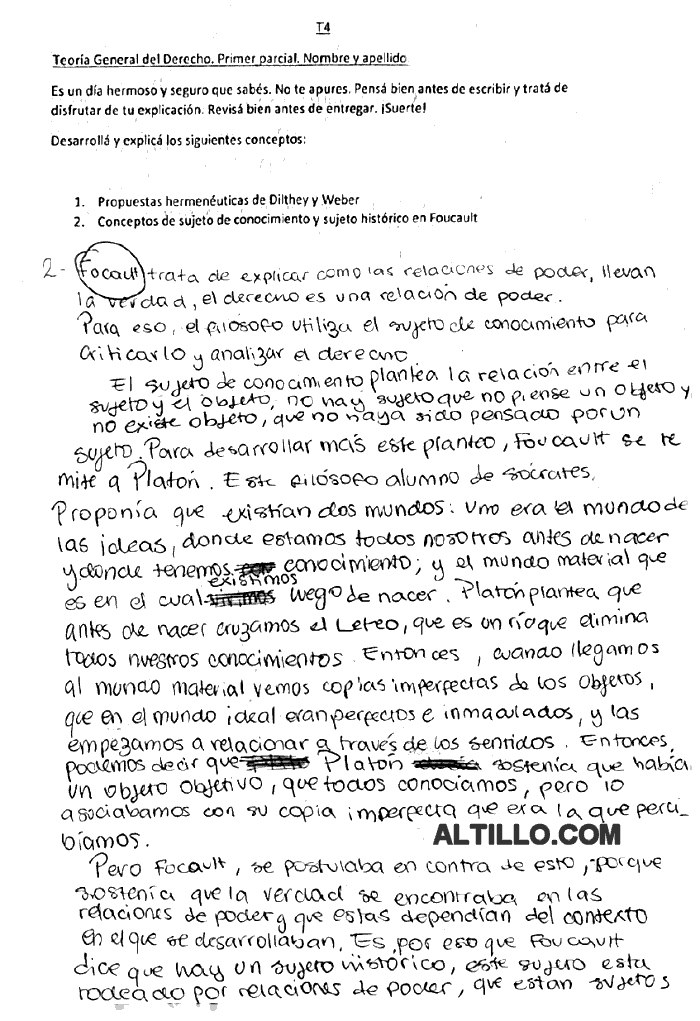 T4
Teoría General del Derecho. Primer parcial. Nombre y apellido
Es un día hermoso y seguro que sabés. No te apures. Pensá bien antes de escribir y tratá de
disfrutar de tu explicación. Revisá bien antes de entregar. ¡Suerte!
Desarrollá y explicá los siguientes conceptos:
1. Propuestas hermenéuticas de Dilthey y Weber
2. Conceptos de sujeto de conocimiento y sujeto histórico en Foucault
2- Focault trata de explicar como las relaciones de poder, llevan
la verdad, el derecho es una relación de poder.
Para eso, el filósofo utiliza el sujeto de conocimiento para
criticarlo y analizar el derecho
El sujeto de conocimiento plantea la relación entre el
sujeto y el objeto, no hay sujeto que no piense un objeto y
no existe objeto, que no haya sido pensado por un
sujeto. Para desarrollar más este planteo, Foucault se re
mite a Platón. Este filósofo alumno de Sócrates,
Proponía que existían dos mundos: uno era el mundo de
las ideas, donde estamos todos nosotros antes de nacer
y donde tenemos conocimiento; y el mundo material que
es en el cual existimos luego de nacer. Platón plantea que
antes de nacer cruzamos el Leteo, que es un río que elimina
todos nuestros conocimientos. Entonces, cuando llegamos
al mundo material vemos copias imperfectas de los objetos,
que en el mundo ideal eran perfectos e inmaculados, y las
empezamos a relacionar a través de los sentidos. Entonces,
podemos decir que Platón sostenía que había
un objeto objetivo, que todos conocíamos, pero lo
asociabamos con su copia imperfecta que era la que perci_
bíamos.
ALTILLO.COM
Pero Focault, se postulaba en contra de esto, porque
sostenía que la verdad se encontraba en las
relaciones de poder y que estas dependían del contexto
en el que se desarrollaban. Es por eso que Foucault
dice que hay un sujeto histórico, este sujeto esta
rodeado por relaciones de poder, que estan sujetos